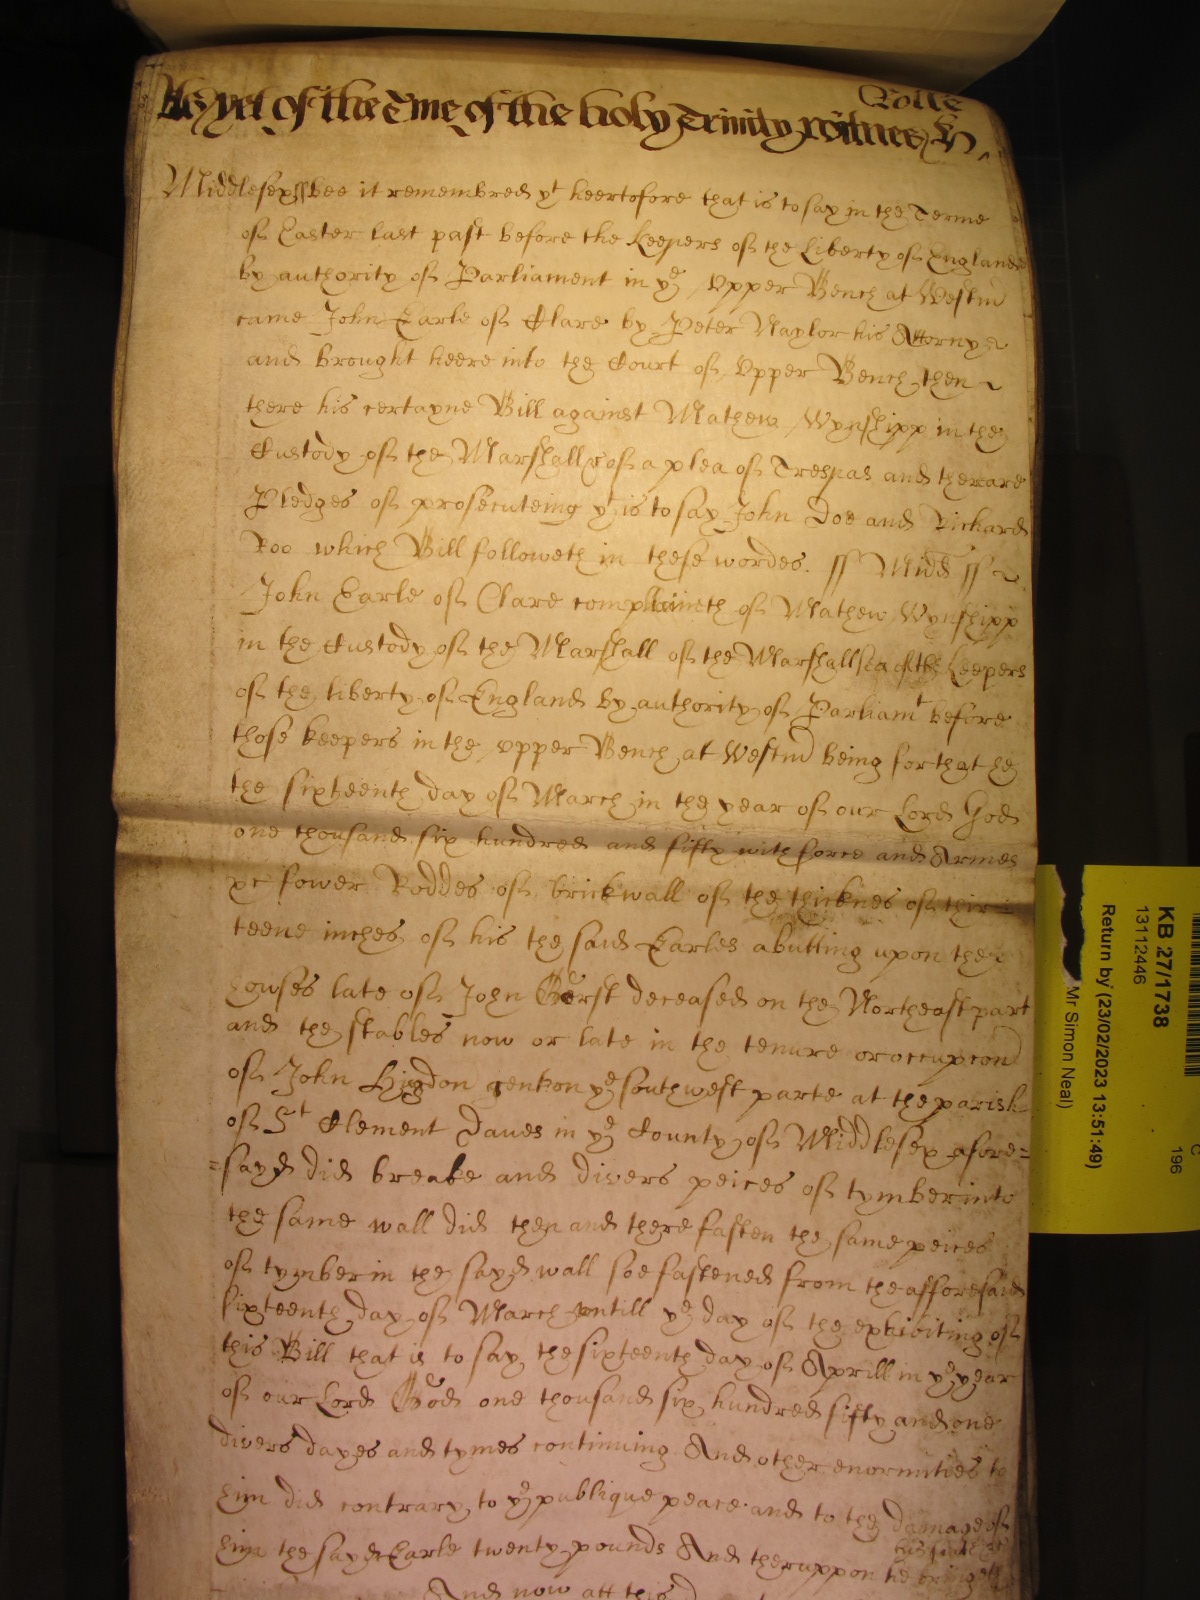 As yet of the Tme of the holy Trinity witnes H.
Rolle
Middlesex ss bee it remembred yt heertofore that is to say in the Terme
of Easter last past before the Keepers of the Liberty of England
by authority of Parliament in ye Upper Bench at Westm
came John Earle of Clare by Peter Naylor his Attorny
and brought heere into the Court of Upper Bench then
there his certayne Bill against Mathew Wynshipp in the
Custody of the Marshall &c of a plea of Trespas and there are
Pledges of prosecuteing yt is to say John Doe and Richard
Roo which Bill followeth in these wordes. ss Midd ss
John Earle of Clare complaineth of Mathew Wynshipp
in the Custody of the Marshall of the Marshallsea of the Keepers
of the liberty of England by authority of Parliamt before
those keepers in the upper Bench at Westm being for that he
the sixteenth day of March in the year of our Lord God
one thousand six hundred and fifty with force and Armes
&c fower Roddes of brickwall of the thicknes of thir
teene inches of his the said Earles abutting upon the
howses late of John deceased on the Northeast part
and the stables now or late in the tenure or occupcon
of John Higdon gent on ye southwest parte at the parish
of St Clement Danes in ye County of Middlesex afore=
=sayd did breake and divers peices of tymber into
the same wall did then and there fasten the same peices
of tymber in the sayd wall soe fastened from the afforesaid
sixteenth day of March untill ye day of the exhibiting of
this Bill that is to say the sixteenth day of Aprill in ye year
of our Lord God one thousand six hundred fifty and one
divers dayes and tymes continuing And other enormities to
him did contrary to ye publique peace and to the damage of
him the sayd Earle twenty pounds And theruppon he bringeth
And now att this
KB 27/1738
13112446
Return by (23/02/2023 13:51:49)
Mr Simon Neal)
C
196